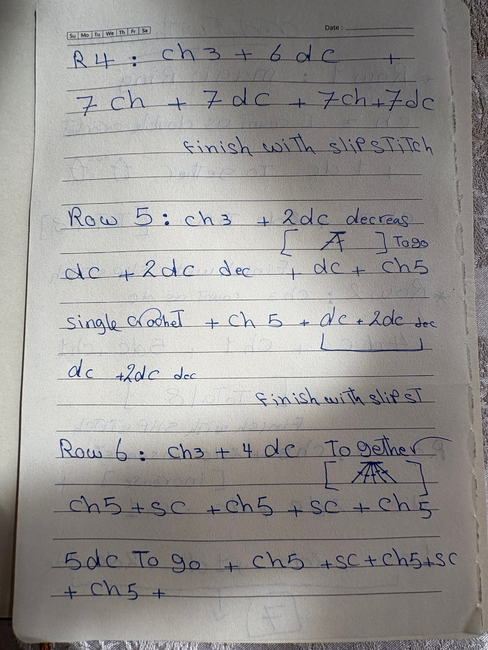 Su Mo Tu We Th Fr Sa Date :
R4 : ch3 + 6 dc +
7 ch + 7 dc + 7ch+7dc
finish with slipsTiTch
Row 5 : ch3 + 2dc decreas
[ ] To go
dc + 2dc dec + dc + ch5
single crocheT + ch 5 + dc + 2dc dec
dc +2dc dec
finish with slip sT
Row 6 : ch3 + 4 dc To gether
ch5 + sc + ch5 + sc + ch5
5dc To go + ch5 +sc+ch5+sc
+ ch5 +